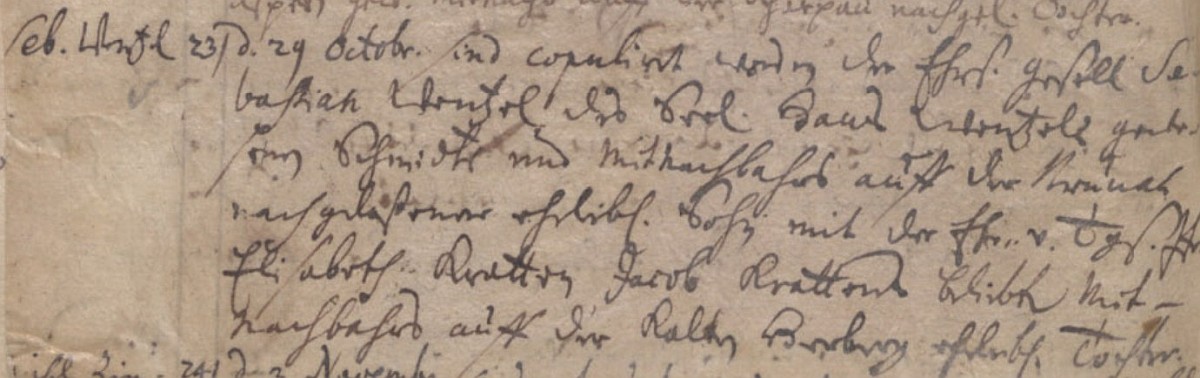 nachgel. Tochter.
Seb. Wenzel 23) d. 29 Octobr. sind copulirt worden der Ehrs. gesell Se-
bastian Wentzel des Seel. Hans Wentzels gewe-
senen Schmidts und Mitnachbahrs auff der
nachgelaßener ehelibl. Sohn mit der Ehr. v. Tgs. Jfr
Elisabeth Kratten Jacob Krattens beliebten Mit-
nachbahrs auff der Kalten Herberg ehelibl. Tochter.
241 d. 3 Novembr